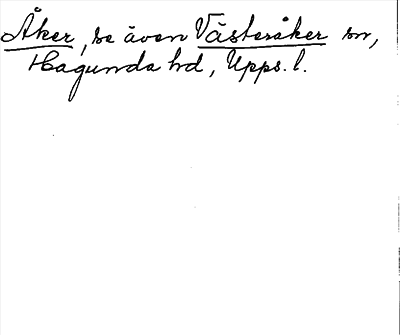 Åker, se även Västeråker sn,
Hagunda hd, Upps. l.